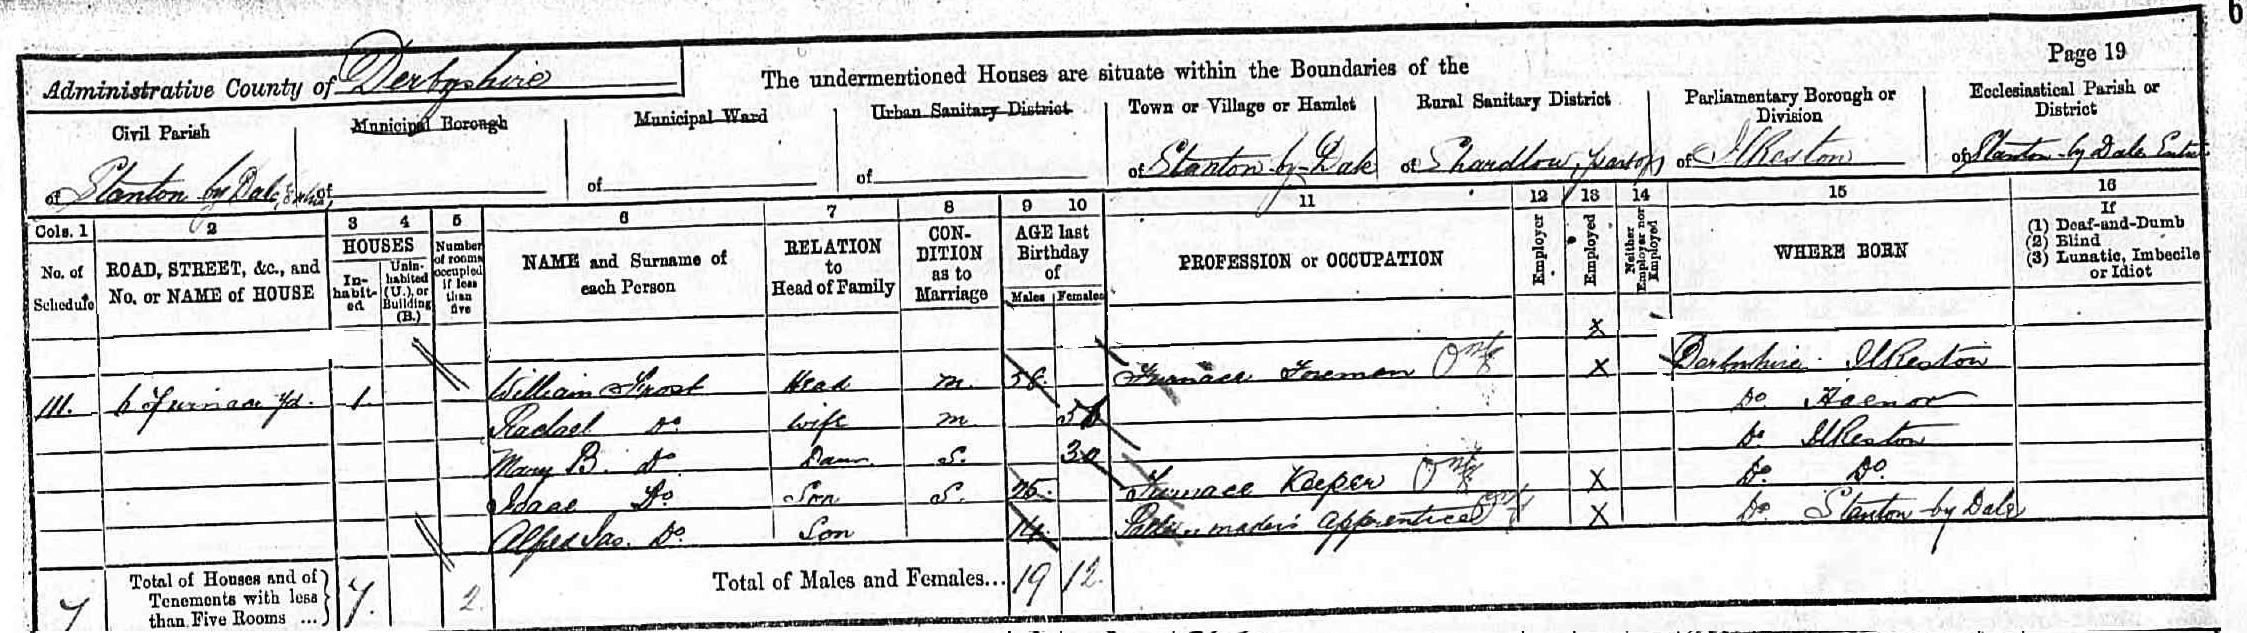 6
Page 19
Administrative County of Derbyshire
The undermentioned Houses are situate within the Boundaries of the
Civil Parish
Municipal Borough
Municipal Ward
Urban Sanitary District
Town or Village or Hamlet
Rural Sanitary District
Parliamentary Borough or Division
Ecclesiastical Parish or District
of Stanton by Dale,
of
of
of
of Stanton-by-Dale
of Shardlow, part of
of Ilkeston
of Stanton-by Dale Entire
Cols. 1 2 3 4 5 6 7 8 9 10 11 12 13 14 15 16
No. of Schedule
ROAD, STREET, &c., and No. or NAME of HOUSE
HOUSES
In-habit-ed
Unin-habited (U.), or Building (B.)
Number of rooms occupied if less than five
NAME and Surname of each Person
RELATION to Head of Family
CON-DITION as to Marriage
AGE last Birthday of
Males Females
PROFESSION or OCCUPATION
Employer
Employed
Neither Employer nor Employed
WHERE BORN
If
(1) Deaf-and-Dumb
(2) Blind
(3) Lunatic, Imbecile or Idiot
X
111. 6 Furnace Yd. 1 William Frost Head M 58 Furnace Foreman X Derbyshire Ilkeston
Rachael Do Wife M 56 Do Heanor
Mary B. Do Daur S. 30 Do Ilkeston
Isaac Do Son S. 25 Furnace Keeper X Do Do
Alfred Jas. Do Son 14 Pattern maker's apprentice X Do Stanton-by Dale
7 Total of Houses and of Tenements with less than Five Rooms ... 7. 2 Total of Males and Females... 19 12.